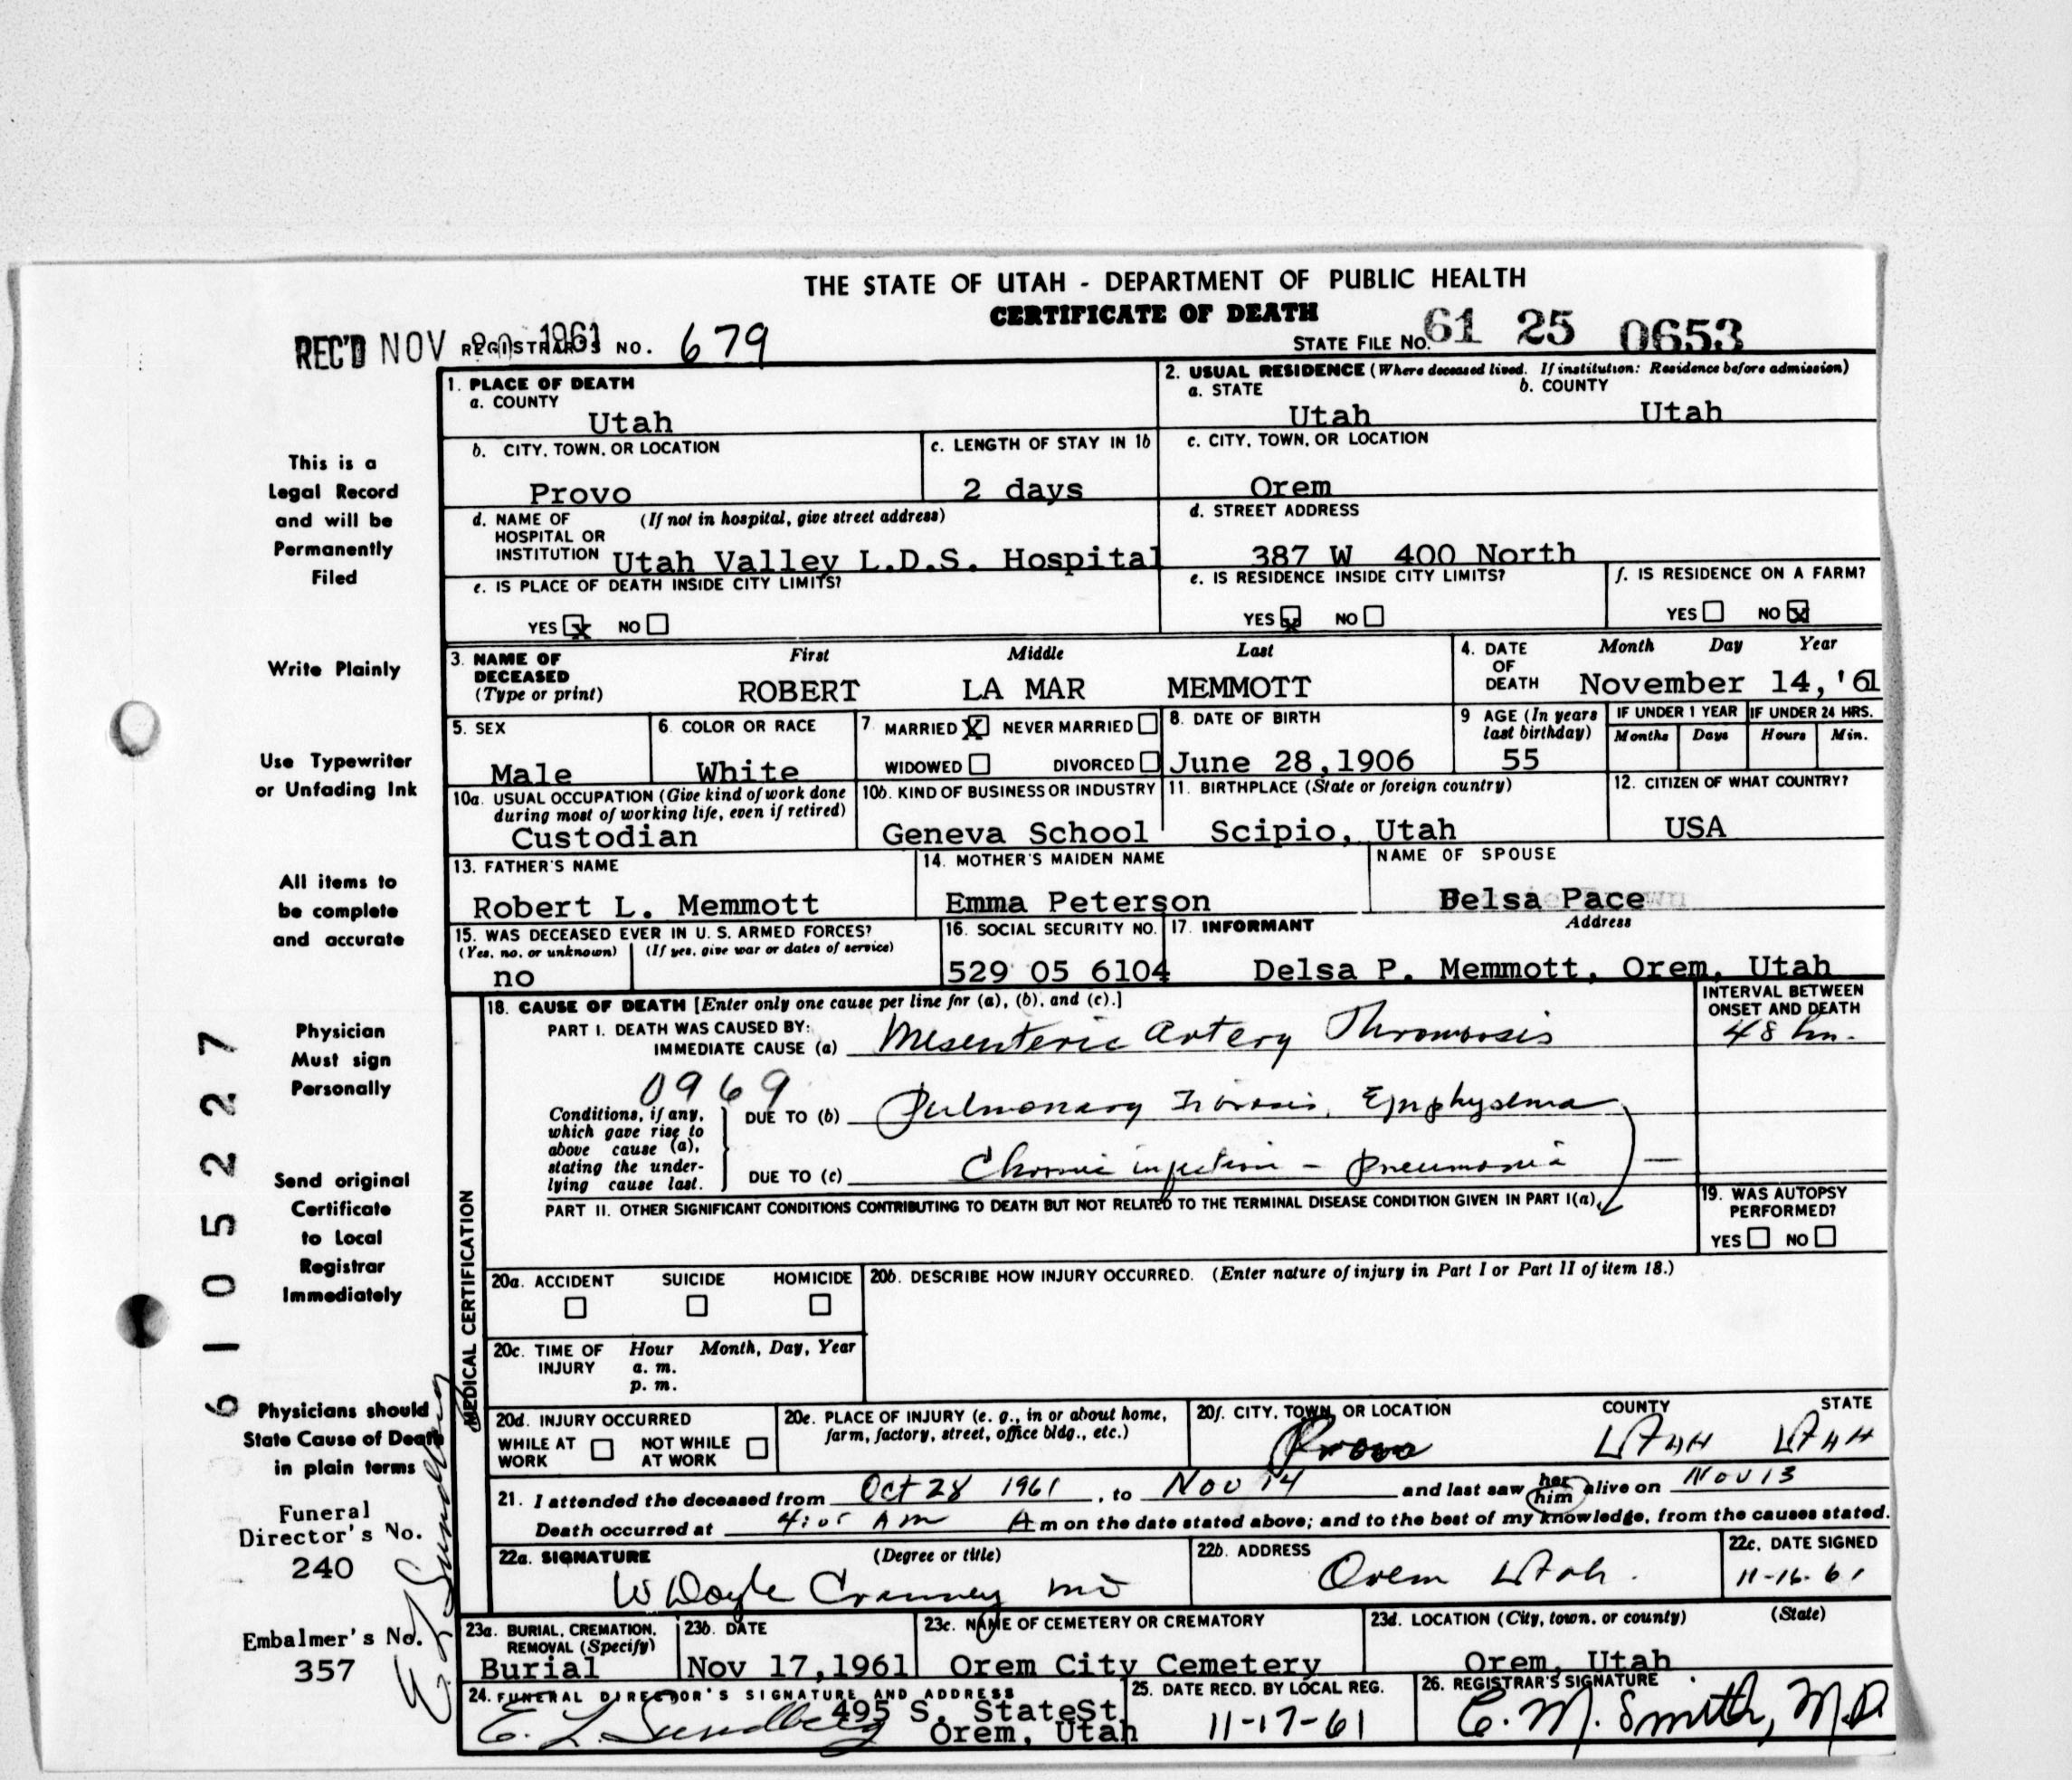 THE STATE OF UTAH - DEPARTMENT OF PUBLIC HEALTH
CERTIFICATE OF DEATH
REC'D NOV 20 1961 REGISTRAR'S NO. 679
STATE FILE NO. 61 25 0653
1. PLACE OF DEATH
a. COUNTY
Utah
2. USUAL RESIDENCE (Where deceased lived. If institution: Residence before admission)
a. STATE b. COUNTY
Utah Utah
b. CITY, TOWN, OR LOCATION
Provo
c. LENGTH OF STAY IN 1b
2 days
c. CITY, TOWN, OR LOCATION
Orem
d. NAME OF (If not in hospital, give street address)
HOSPITAL OR
INSTITUTION Utah Valley L.D.S. Hospital
d. STREET ADDRESS
387 W 400 North
e. IS PLACE OF DEATH INSIDE CITY LIMITS?
YES x NO
e. IS RESIDENCE INSIDE CITY LIMITS?
YES x NO
f. IS RESIDENCE ON A FARM?
YES NO x
3. NAME OF DECEASED (Type or print)
First Middle Last
ROBERT LA MAR MEMMOTT
4. DATE OF DEATH
Month Day Year
November 14,'61
5. SEX
Male
6. COLOR OR RACE
White
7. MARRIED X NEVER MARRIED
WIDOWED DIVORCED
8. DATE OF BIRTH
June 28,1906
9 AGE (In years last birthday)
55
IF UNDER 1 YEAR IF UNDER 24 HRS.
Months Days Hours Min.
10a. USUAL OCCUPATION (Give kind of work done
during most of working life, even if retired)
Custodian
10b. KIND OF BUSINESS OR INDUSTRY
Geneva School
11. BIRTHPLACE (State or foreign country)
Scipio, Utah
12. CITIZEN OF WHAT COUNTRY?
USA
13. FATHER'S NAME
Robert L. Memmott
14. MOTHER'S MAIDEN NAME
Emma Peterson
NAME OF SPOUSE
Delsa Pace
15. WAS DECEASED EVER IN U. S. ARMED FORCES?
(Yes, no, or unknown) (If yes, give war or dates of service)
no
16. SOCIAL SECURITY NO.
529 05 6104
17. INFORMANT Address
Delsa P. Memmott, Orem, Utah
MEDICAL CERTIFICATION
18. CAUSE OF DEATH [Enter only one cause per line for (a), (b), and (c).]
INTERVAL BETWEEN
ONSET AND DEATH
PART I. DEATH WAS CAUSED BY:
IMMEDIATE CAUSE (a) Mesenteric Artery Thrombosis 48 hrs.
0969
Conditions, if any,
which gave rise to
above cause (a),
stating the under-
lying cause last.
DUE TO (b) Pulmonary Fibrosis, Emphysema
DUE TO (c) Chronic infection - Pneumonia
PART II. OTHER SIGNIFICANT CONDITIONS CONTRIBUTING TO DEATH BUT NOT RELATED TO THE TERMINAL DISEASE CONDITION GIVEN IN PART I(a).
19. WAS AUTOPSY
PERFORMED?
YES NO
20a. ACCIDENT SUICIDE HOMICIDE
20b. DESCRIBE HOW INJURY OCCURRED. (Enter nature of injury in Part I or Part II of item 18.)
20c. TIME OF INJURY
Hour Month, Day, Year
a. m.
p. m.
20d. INJURY OCCURRED
WHILE AT WORK NOT WHILE AT WORK
20e. PLACE OF INJURY (e. g., in or about home,
farm, factory, street, office bldg., etc.)
20f. CITY, TOWN, OR LOCATION COUNTY STATE
Provo UTAH UTAH
21. I attended the deceased from Oct 28 1961, to Nov 14 and last saw her him alive on Nov 13
Death occurred at 4:05 AM A m on the date stated above; and to the best of my knowledge, from the causes stated.
22a. SIGNATURE (Degree or title)
W Doyle Cranney MD
22b. ADDRESS
Orem Utah.
22c. DATE SIGNED
11-16-61
23a. BURIAL, CREMATION,
REMOVAL (Specify)
Burial
23b. DATE
Nov 17,1961
23c. NAME OF CEMETERY OR CREMATORY
Orem City Cemetery
23d. LOCATION (City, town, or county) (State)
Orem, Utah
24. FUNERAL DIRECTOR'S SIGNATURE AND ADDRESS
E. L. Sundberg
495 S. StateSt.
Orem, Utah
25. DATE RECD. BY LOCAL REG.
11-17-61
26. REGISTRAR'S SIGNATURE
C. M. Smith, M.D.
This is a
Legal Record
and will be
Permanently
Filed
Write Plainly
Use Typewriter
or Unfading Ink
All items to
be complete
and accurate
Physician
Must sign
Personally
Send original
Certificate
to Local
Registrar
Immediately
Physicians should
State Cause of Death
in plain terms
Funeral
Director's No.
240
Embalmer's No.
357
E. L. Sundberg
6105227